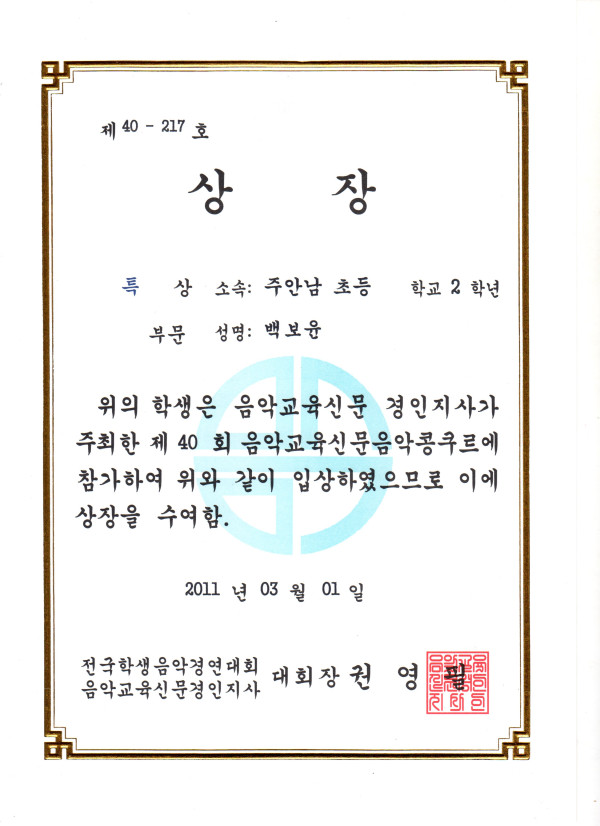 제 40 - 217 호
상 장
특 상 소속: 주안남 초등 학교 2 학년
부문 성명: 백보윤
위의 학생은 음악교육신문 경인지사가
주최한 제 40 회 음악교육신문음악콩쿠르에
참가하여 위와 같이 입상하였으므로 이에
상장을 수여함.
2011 년 03 월 01 일
전국학생음악경연대회
음악교육신문경인지사
대회장 권 영 필